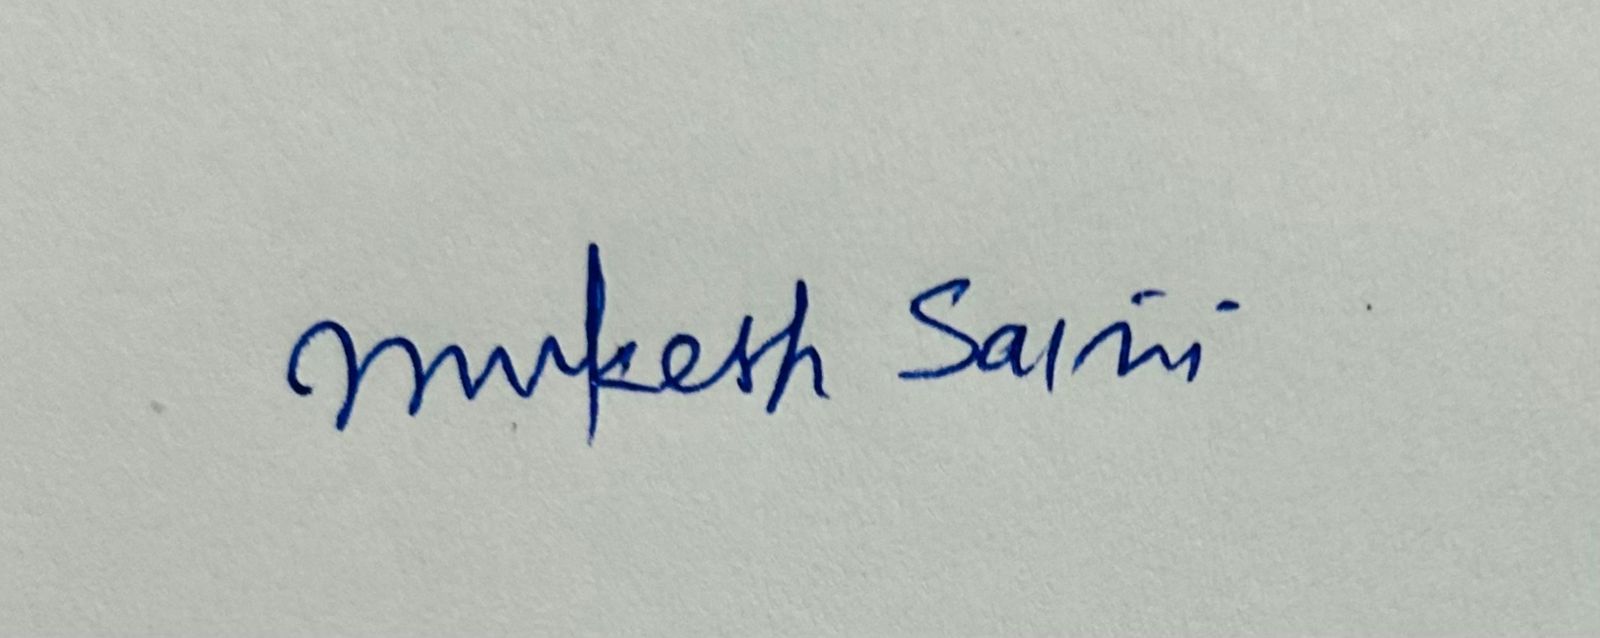 Mukesh Saini